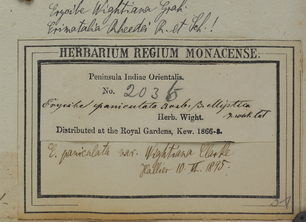 Erycibe Wightiana Grah.
Erimatalia Rheedei R. et Sch.!
HERBARIUM REGIUM MONACENSE.
Peninsula Indiae Orientalis.
No. 2036
Erycibe paniculata Roxb. β elliptica
Herb. Wight.
Distributed at the Royal Gardens, Kew. 1866-8.
E. paniculata var. Wightiana Clarke
Hallier 10. II. 1895.